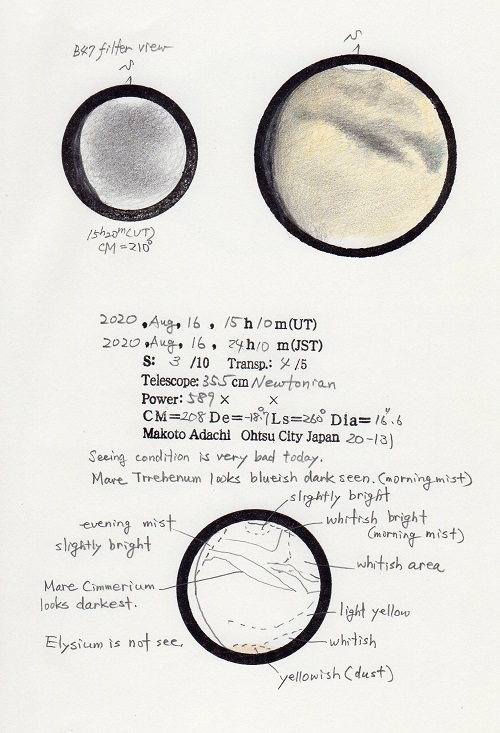 B47 filter view
S
S
15h20m(UT)
CM=210°
2020, Aug, 16, 15h10m(UT)
2020, Aug, 16, 24h10m(JST)
S: 3 /10 Transp.: 4 /5
Telescope: 355cm Newtonian
Power: 589× ×
CM=208 De=-18.7° Ls=260° Dia=16.6"
Makoto Adachi Ohtsu City Japan 20-131
Seeing condition is very bad today.
Mare Trrehenum looks blueish dark seen. (morning mist)
slightly bright
evening mist
slightly bright
whitish bright
(morning mist)
whitish area
Mare Cimmerium
looks darkest.
light yellow
Elysium is not see.
whitish
yellowish (dust)